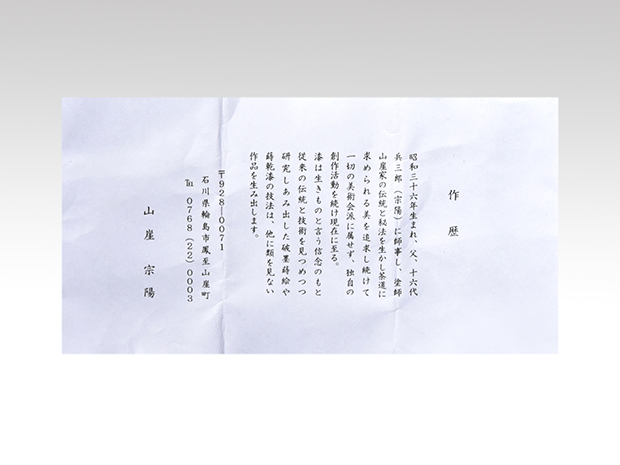 作歴
昭和三十六年生まれ、父、十六代
兵三郎（宗陽）に師事し、塗師
山崖家の伝統と秘法を生かし茶道に
求められる美を追求し続けて
一切の美術会派に属せず、独自の
創作活動を続け現在に至る。
漆は生きものと言う信念のもと
従来の伝統と技術を見つめつつ
研究しあみ出した破墨蒔絵や
蒔乾漆の技法は、他に類を見ない
作品を生み出します。
〒928―0071
石川県輪島市鳳至山崖町
℡ 0768(22)0003
山崖 宗陽